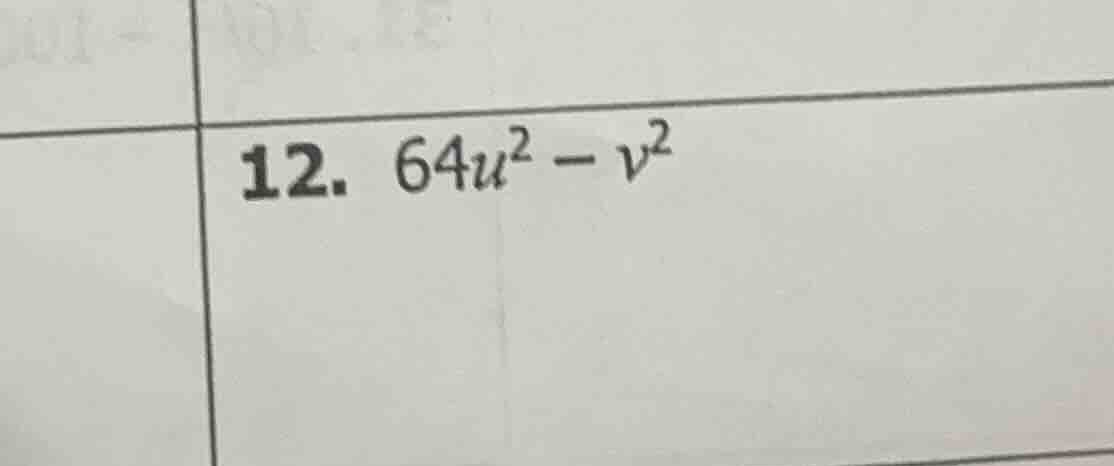 12. 64u² − v²